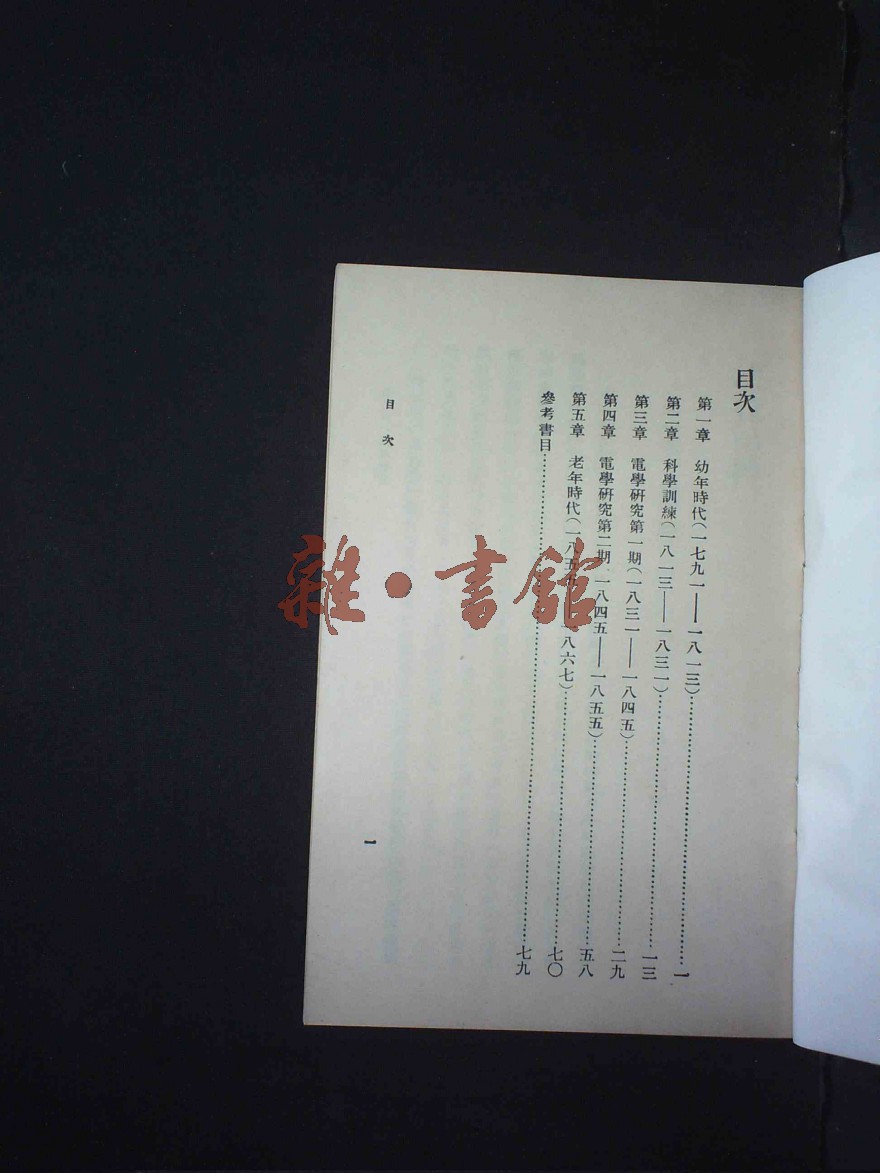 目次
第一章 幼年時代(一七九一——一八一三)……一
第二章 科學訓練(一八一三——一八三一)……一三
第三章 電學研究第一期(一八三一——一八四五)……二九
第四章 電學研究第二期(一八四五——一八五五)……五八
第五章 老年時代(一八五五——一八六七)……七〇
參考書目……七九
目次
一
雜·書館